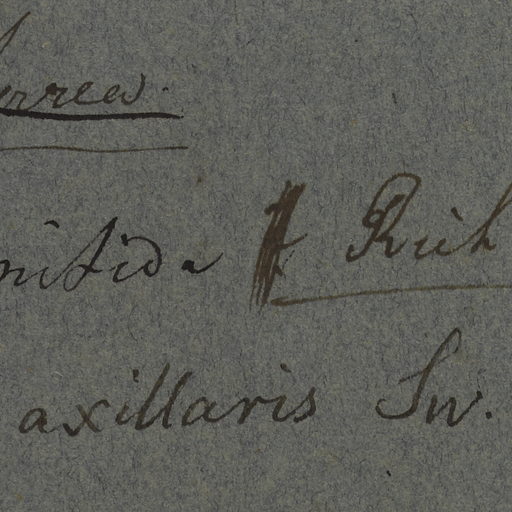 rrea.
nitida Rich
axillaris Sw.